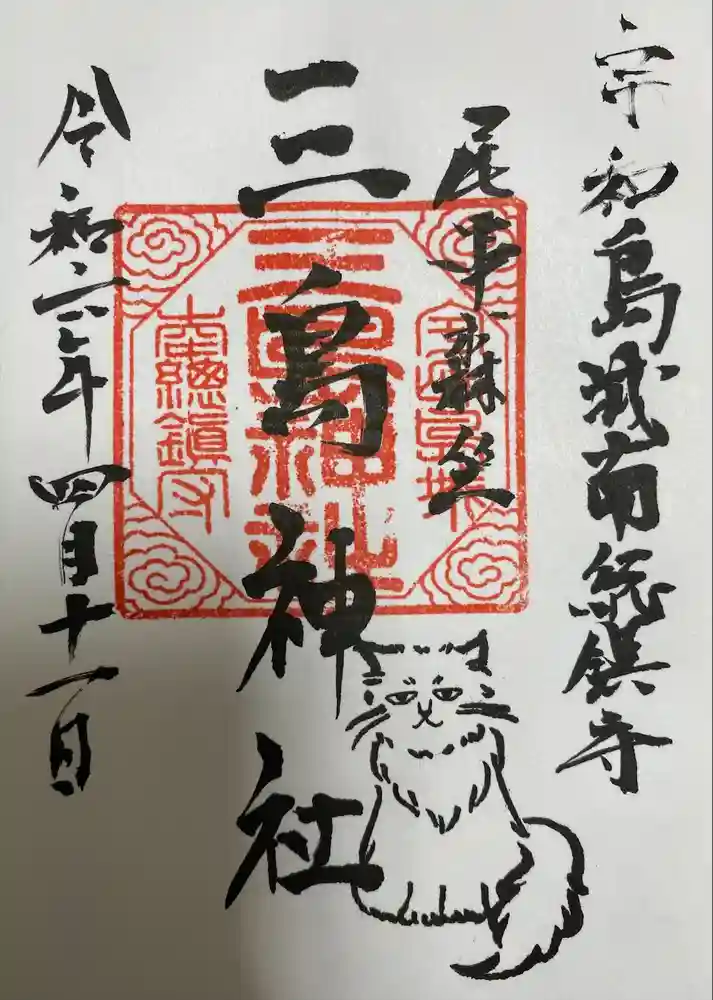 宇和島城南総鎮守
三島神社
令和六年四月十一日
宇和島城
三島神社
南総鎮守